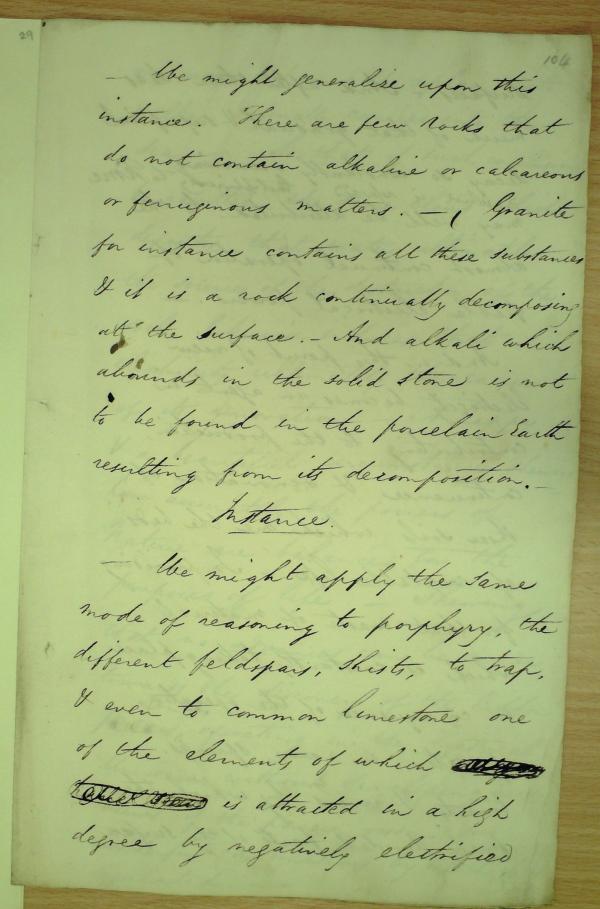 29
104
— We might generalise upon this
instance. There are few rocks that
do not contain alkaline or calcareous
or ferruginous matters. — , Granite
for instance contains all these substances
& it is a rock continually decomposing
at the surface. — And alkali which
abounds in the solid stone is not
to be found in the porcelain Earth
resulting from its decomposition. —
Instance.
— We might apply the same
mode of reasoning to porphyry, the
different feldspars, Shists, to trap,
& even to common limestone one
of the elements of which
is attracted in a high
degree by negatively electrified